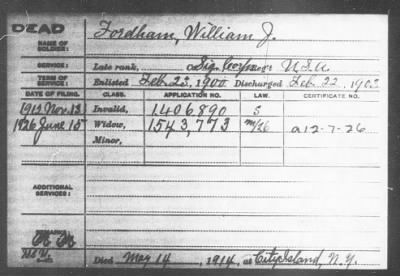 DEAD
NAME OF SOLDIER: Fordham, William J.
SERVICE: Late rank, Co. Sig. Corps Reg't U.S.A.
TERM OF SERVICE: Enlisted Feb. 23, 1900 Discharged Feb. 22, 1903
DATE OF FILING. CLASS. APPLICATION NO. LAW. CERTIFICATE NO.
1912 Nov. 13 Invalid, 1,406,890 S
1926 June 15 Widow, 1,543,773 m/26 a12-7-26
Minor,
ADDITIONAL SERVICES:
REMARKS:
Died May 14, 1914, at City Island N.Y.